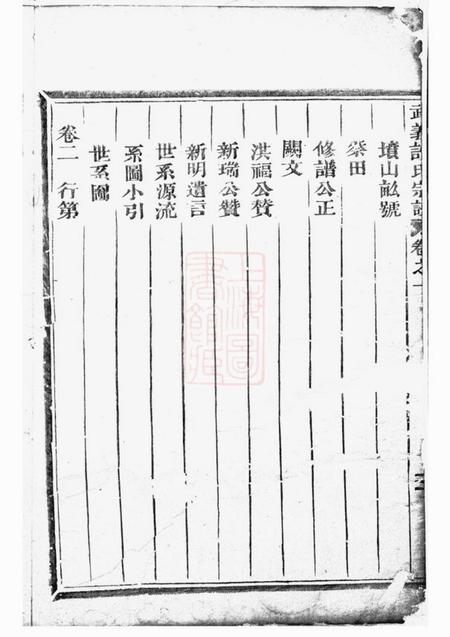 武義許氏宗譜 卷之一
墳山畝號
祭田
修譜公正
闕文
淇福公贊
新瑞公贊
新明遺言
世系源流
系圖小引
世系圖
卷二 行第
上海圖書館藏